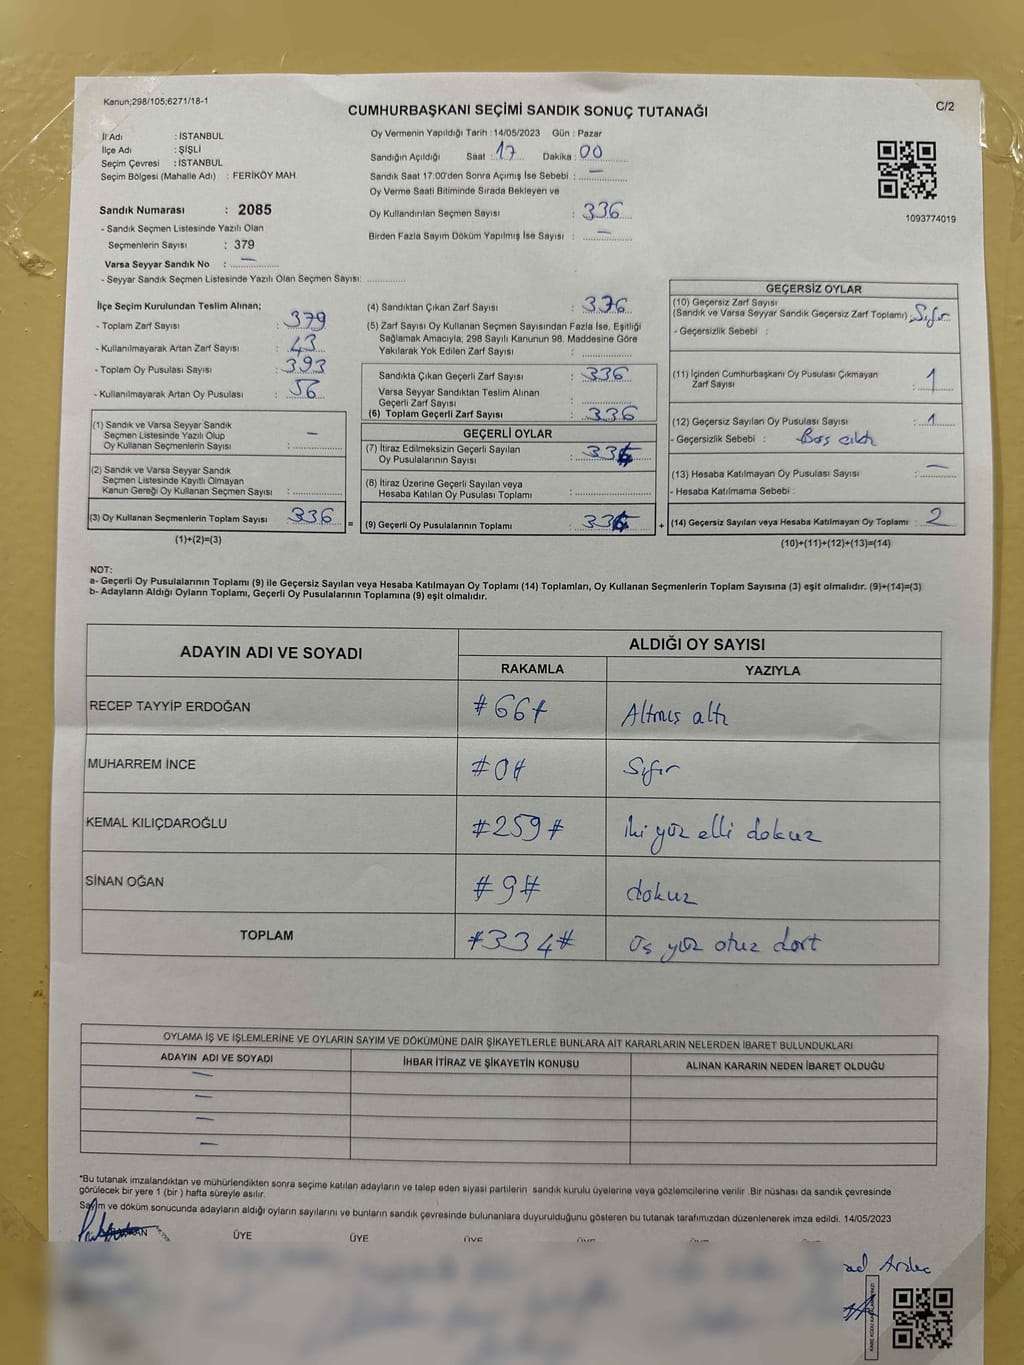 Kanun;298/105;6271/18-1
CUMHURBAŞKANI SEÇİMİ SANDIK SONUÇ TUTANAĞI
C/2
İl Adı : İSTANBUL
İlçe Adı : ŞİŞLİ
Seçim Çevresi : İSTANBUL
Seçim Bölgesi (Mahalle Adı) : FERİKÖY MAH
Sandık Numarası : 2085
- Sandık Seçmen Listesinde Yazılı Olan
Seçmenlerin Sayısı : 379
Varsa Seyyar Sandık No : –
- Seyyar Sandık Seçmen Listesinde Yazılı Olan Seçmen Sayısı:
Oy Vermenin Yapıldığı Tarih : 14/05/2023 Gün : Pazar
Sandığın Açıldığı Saat : 17 Dakika : 00
Sandık Saat 17:00'den Sonra Açımış İse Sebebi : –
Oy Verme Saati Bitiminde Sırada Bekleyen ve
Oy Kullandırılan Seçmen Sayısı : 336
Birden Fazla Sayım Döküm Yapılmış İse Sayısı : –
1093774019
İlçe Seçim Kurulundan Teslim Alınan;
- Toplam Zarf Sayısı : 379
- Kullanılmayarak Artan Zarf Sayısı : 43
- Toplam Oy Pusulası Sayısı : 393
- Kullanılmayarak Artan Oy Pusulası : 56
(1) Sandık ve Varsa Seyyar Sandık
Seçmen Listesinde Yazılı Olup
Oy Kullanan Seçmenlerin Sayısı : –
(2) Sandık ve Varsa Seyyar Sandık
Seçmen Listesinde Kayıtlı Olmayan
Kanun Gereği Oy Kullanan Seçmen Sayısı :
(3) Oy Kullanan Seçmenlerin Toplam Sayısı : 336
(1)+(2)=(3)
(4) Sandıktan Çıkan Zarf Sayısı : 336
(5) Zarf Sayısı Oy Kullanan Seçmen Sayısından Fazla İse, Eşitliği
Sağlamak Amacıyla; 298 Sayılı Kanunun 98. Maddesine Göre
Yakılarak Yok Edilen Zarf Sayısı :
Sandıkta Çıkan Geçerli Zarf Sayısı : 336
Varsa Seyyar Sandıktan Teslim Alınan
Geçerli Zarf Sayısı :
(6) Toplam Geçerli Zarf Sayısı : 336
GEÇERLİ OYLAR
(7) İtiraz Edilmeksizin Geçerli Sayılan
Oy Pusulalarının Sayısı :
(8) İtiraz Üzerine Geçerli Sayılan veya
Hesaba Katılan Oy Pusulası Toplamı :
= (9) Geçerli Oy Pusulalarının Toplamı :
GEÇERSİZ OYLAR
(10) Geçersiz Zarf Sayısı
(Sandık ve Varsa Seyyar Sandık Geçersiz Zarf Toplamı) : Sıfır
- Geçersizlik Sebebi :
(11) İçinden Cumhurbaşkanı Oy Pusulası Çıkmayan
Zarf Sayısı : 1
(12) Geçersiz Sayılan Oy Pusulası Sayısı : 1
- Geçersizlik Sebebi : Boş çıktı
(13) Hesaba Katılmayan Oy Pusulası Sayısı : –
- Hesaba Katılmama Sebebi :
+ (14) Geçersiz Sayılan veya Hesaba Katılmayan Oy Toplamı : 2
(10)+(11)+(12)+(13)=(14)
NOT:
a- Geçerli Oy Pusulalarının Toplamı (9) ile Geçersiz Sayılan veya Hesaba Katılmayan Oy Toplamı (14) Toplamları, Oy Kullanan Seçmenlerin Toplam Sayısına (3) eşit olmalıdır. (9)+(14)=(3)
b- Adayların Aldığı Oyların Toplamı, Geçerli Oy Pusulalarının Toplamına (9) eşit olmalıdır.
ADAYIN ADI VE SOYADI
ALDIĞI OY SAYISI
RAKAMLA YAZIYLA
RECEP TAYYİP ERDOĞAN #66# Altmış altı
MUHARREM İNCE #0# Sıfır
KEMAL KILIÇDAROĞLU #259# iki yüz elli dokuz
SİNAN OĞAN #9# dokuz
TOPLAM #334# üç yüz otuz dört
OYLAMA İŞ VE İŞLEMLERİNE VE OYLARIN SAYIM VE DÖKÜMÜNE DAİR ŞİKAYETLERLE BUNLARA AİT KARARLARIN NELERDEN İBARET BULUNDUKLARI
ADAYIN ADI VE SOYADI İHBAR İTİRAZ VE ŞİKAYETİN KONUSU ALINAN KARARIN NEDEN İBARET OLDUĞU
–
–
–
–
*Bu tutanak imzalandıktan ve mühürlendikten sonra seçime katılan adayların ve talep eden siyasi partilerin sandık kurulu üyelerine veya gözlemcilerine verilir .Bir nüshası da sandık çevresinde
görülecek bir yere 1 (bir ) hafta süreyle asılır.
Sayım ve döküm sonucunda adayların aldığı oyların sayılarını ve bunların sandık çevresinde bulunanlara duyurulduğunu gösteren bu tutanak tarafımızdan düzenlenerek imza edildi. 14/05/2023
ÜYE ÜYE ÜYE ÜYE